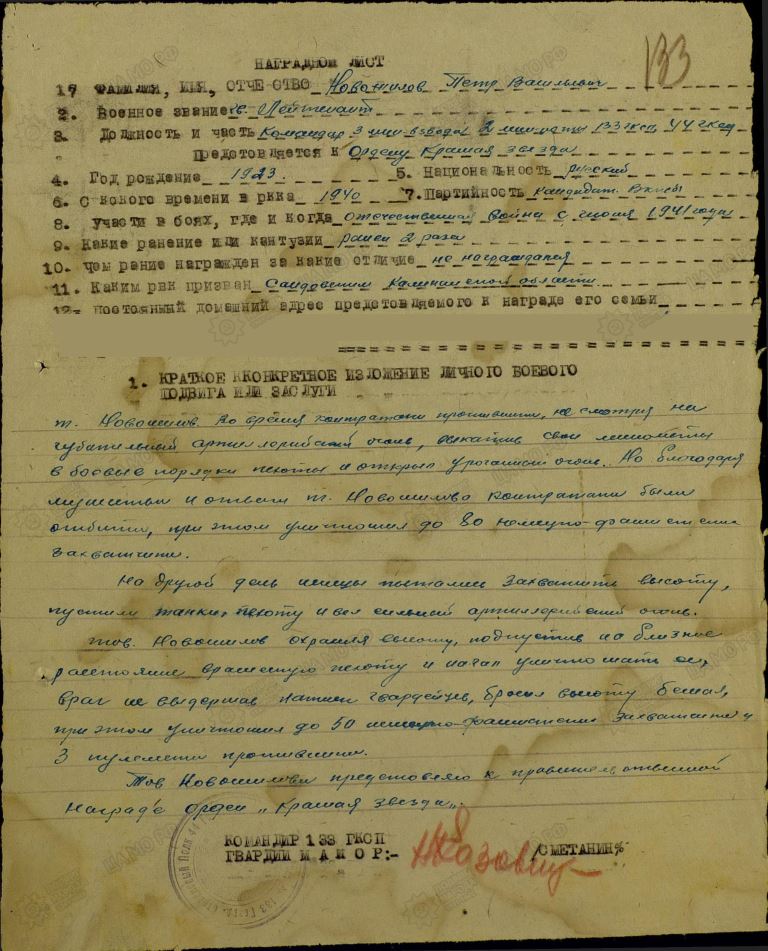 133
НАГРАДНОЙ ЛИСТ
1. ФАМИЛИЯ, ИМЯ, ОТЧЕСТВО Новожилов Петр Васильевич
2. Военное звание гв. Лейтенант
3. Должность и часть Командир 3 мин-взвода 2 минроты 133 гксп 44 гксд
Предстовляется к Ордену Красная звезда
4. Год рождение 1923. 5. Национальность русский
6. С кокого времени в ркка 1940 7. Партийность кандидат. ВКП(б)
8. участи в боях, где и когда отечественная война с июля 1941 года
9. Какие ранение или кантузии ранен 2 раза
10. чем рание награжден за какие отличие не награждался
11. Каким рвк призван Сандовским Калининской области
12. постоянный домашний адрес предстовляемого к награде его семьи
1. КРАТКОЕ КОНКРЕТНОЕ ИЗЛОЖЕНИЕ ЛИЧНОГО БОЕВОГО
ПОДВИГА ИЛИ ЗАСЛУГИ
т. Новожилов во время контратаки противника, не смотря на
губительный артиллерийский огонь, свои минометы
в боевые порядки пехоты и открыл ураганный огонь. Но благодаря
мужеству и отваги т. Новожилова контратаки были
отбиты, при этом уничтожил до 80 немецко-фашистских
захватчики.
На другой день немцы пытались захватить высоту,
пустили танки, пехоту и вел сильный артиллерийский огонь.
тов. Новожилов охраняя высоту, подпустив на близкое
расстояние вражескую пехоту и начал уничтожать ее,
враг не выдержав натиск гвардейцев, бросил высоту бежал,
при этом уничтожил до 50 немецко-фашистских захватчики и
3 пулемета противника.
Тов Новожилова представляю к правительственной
награде орден „Красная звезда".
КОМАНДИР 133 ГКСП
ГВАРДИИ МАЙОР:- /СМЕТАНИН/